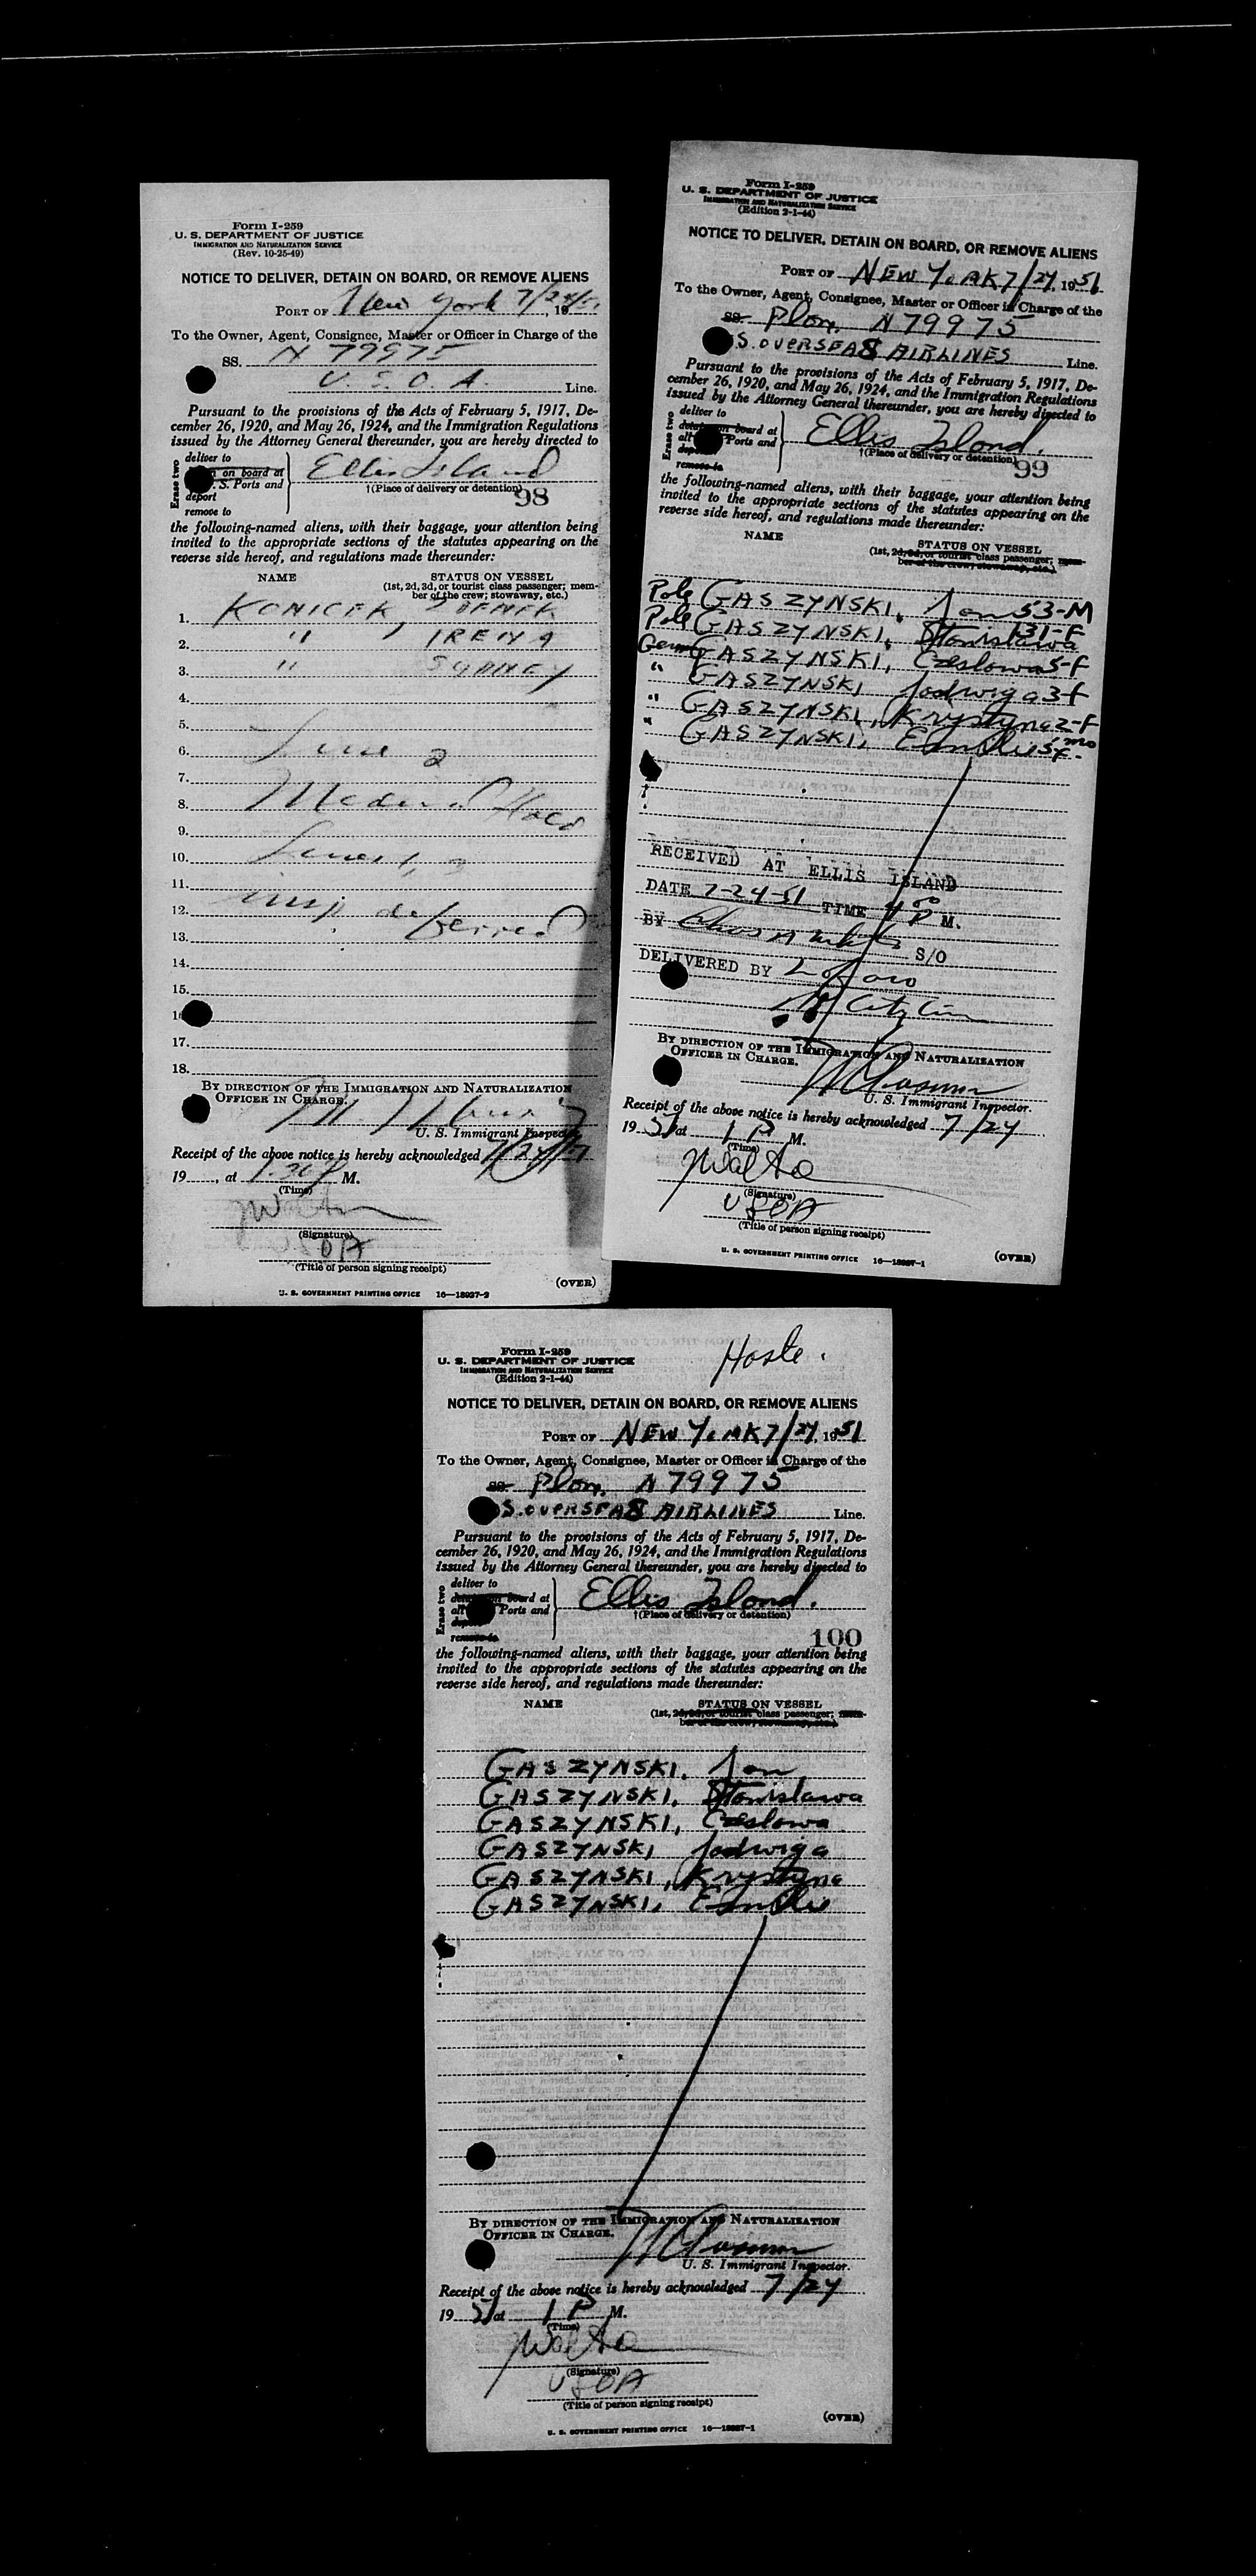 Form I-259
U. S. DEPARTMENT OF JUSTICE
IMMIGRATION AND NATURALIZATION SERVICE
(Rev. 10-25-49)
NOTICE TO DELIVER, DETAIN ON BOARD, OR REMOVE ALIENS
PORT OF New York 7/24/51, 19
To the Owner, Agent, Consignee, Master or Officer in Charge of the
SS. N 79975
U.S.O.A. Line.
Pursuant to the provisions of the Acts of February 5, 1917, De-
cember 26, 1920, and May 26, 1924, and the Immigration Regulations
issued by the Attorney General thereunder, you are hereby directed to
Erase two
deliver to
on board at
S. Ports and
deport
remove to
Ellis Island
†(Place of delivery or detention)
98
the following-named aliens, with their baggage, your attention being
invited to the appropriate sections of the statutes appearing on the
reverse side hereof, and regulations made thereunder:
NAME STATUS ON VESSEL
(1st, 2d, 3d, or tourist class passenger; mem-
ber of the crew; stowaway, etc.)
1. KONICEK, ZDENEK
2. " , IRENA
3. " SYDNEY
4.
5.
6. Line 2
7.
8. Medical Hold
9.
10. Lines 1, 3
11.
12. insp deferred
13.
14.
15.
16
17.
18.
BY DIRECTION OF THE IMMIGRATION AND NATURALIZATION
OFFICER IN CHARGE.
U. S. Immigrant Inspector
Receipt of the above notice is hereby acknowledged 7/24/51
19, at 1:30 P M.
(Time)
(Signature)
USOA
(Title of person signing receipt)
(OVER)
U. S. GOVERNMENT PRINTING OFFICE 16—18927-2
Form I-259
U. S. DEPARTMENT OF JUSTICE
IMMIGRATION AND NATURALIZATION SERVICE
(Edition 2-1-44)
NOTICE TO DELIVER, DETAIN ON BOARD, OR REMOVE ALIENS
PORT OF NEW YORK 7/24, 1951
To the Owner, Agent, Consignee, Master or Officer in Charge of the
SS. Plane N79975
S. OVERSEAS AIRLINES Line.
Pursuant to the provisions of the Acts of February 5, 1917, De-
cember 26, 1920, and May 26, 1924, and the Immigration Regulations
issued by the Attorney General thereunder, you are hereby directed to
Erase two
deliver to
detain on board at
all Ports and
deport
remove to
Ellis Island.
†(Place of delivery or detention)
99
the following-named aliens, with their baggage, your attention being
invited to the appropriate sections of the statutes appearing on the
reverse side hereof, and regulations made thereunder:
NAME STATUS ON VESSEL
(1st, 2d, 3d, or tourist class passenger; mem-
ber of the crew; stowaway, etc.)
Pole GASZYNSKI, Jan 53-M
Pole GASZYNSKI, Stanislawa 31-F
Germ GASZYNSKI, Czeslowa 5-F
" GASZYNSKI Jadwiga 3-f
" GASZYNSKI, Krystyna 2-F
" GASZYNSKI, Emilie 5 mo f.
RECEIVED AT ELLIS ISLAND
DATE 7-24-51 TIME 4 00 P M.
BY S/O
DELIVERED BY
BY DIRECTION OF THE IMMIGRATION AND NATURALIZATION
OFFICER IN CHARGE.
U. S. Immigrant Inspector.
Receipt of the above notice is hereby acknowledged 7/24
1951 at 1 P M.
(Time)
(Signature)
USOA
(Title of person signing receipt)
U. S. GOVERNMENT PRINTING OFFICE 16—18927-1
(OVER)
Form I-259
U. S. DEPARTMENT OF JUSTICE
IMMIGRATION AND NATURALIZATION SERVICE
(Edition 2-1-44)
NOTICE TO DELIVER, DETAIN ON BOARD, OR REMOVE ALIENS
PORT OF NEW YORK 7/24, 1951
To the Owner, Agent, Consignee, Master or Officer in Charge of the
SS. Plane N79975
S. OVERSEAS AIRLINES Line.
Pursuant to the provisions of the Acts of February 5, 1917, De-
cember 26, 1920, and May 26, 1924, and the Immigration Regulations
issued by the Attorney General thereunder, you are hereby directed to
Erase two
deliver to
detain on board at
all Ports and
deport
remove to
Ellis Island.
†(Place of delivery or detention)
100
the following-named aliens, with their baggage, your attention being
invited to the appropriate sections of the statutes appearing on the
reverse side hereof, and regulations made thereunder:
NAME STATUS ON VESSEL
(1st, 2d, 3d, or tourist class passenger; mem-
ber of the crew; stowaway, etc.)
GASZYNSKI, Jan
GASZYNSKI, Stanislawa
GASZYNSKI, Czeslowa
GASZYNSKI Jadwiga
GASZYNSKI, Krystyna
GASZYNSKI, Emilie
BY DIRECTION OF THE IMMIGRATION AND NATURALIZATION
OFFICER IN CHARGE.
U. S. Immigrant Inspector.
Receipt of the above notice is hereby acknowledged 7/24
1951 at 1 P M.
(Time)
(Signature)
USOA
(Title of person signing receipt)
(OVER)
U. S. GOVERNMENT PRINTING OFFICE 16—18927-1